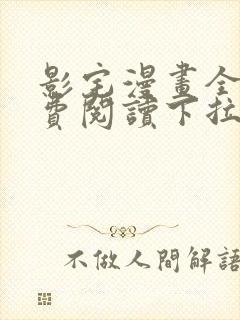 影宅漫畫全
費閱讀下拉
不做人間解語